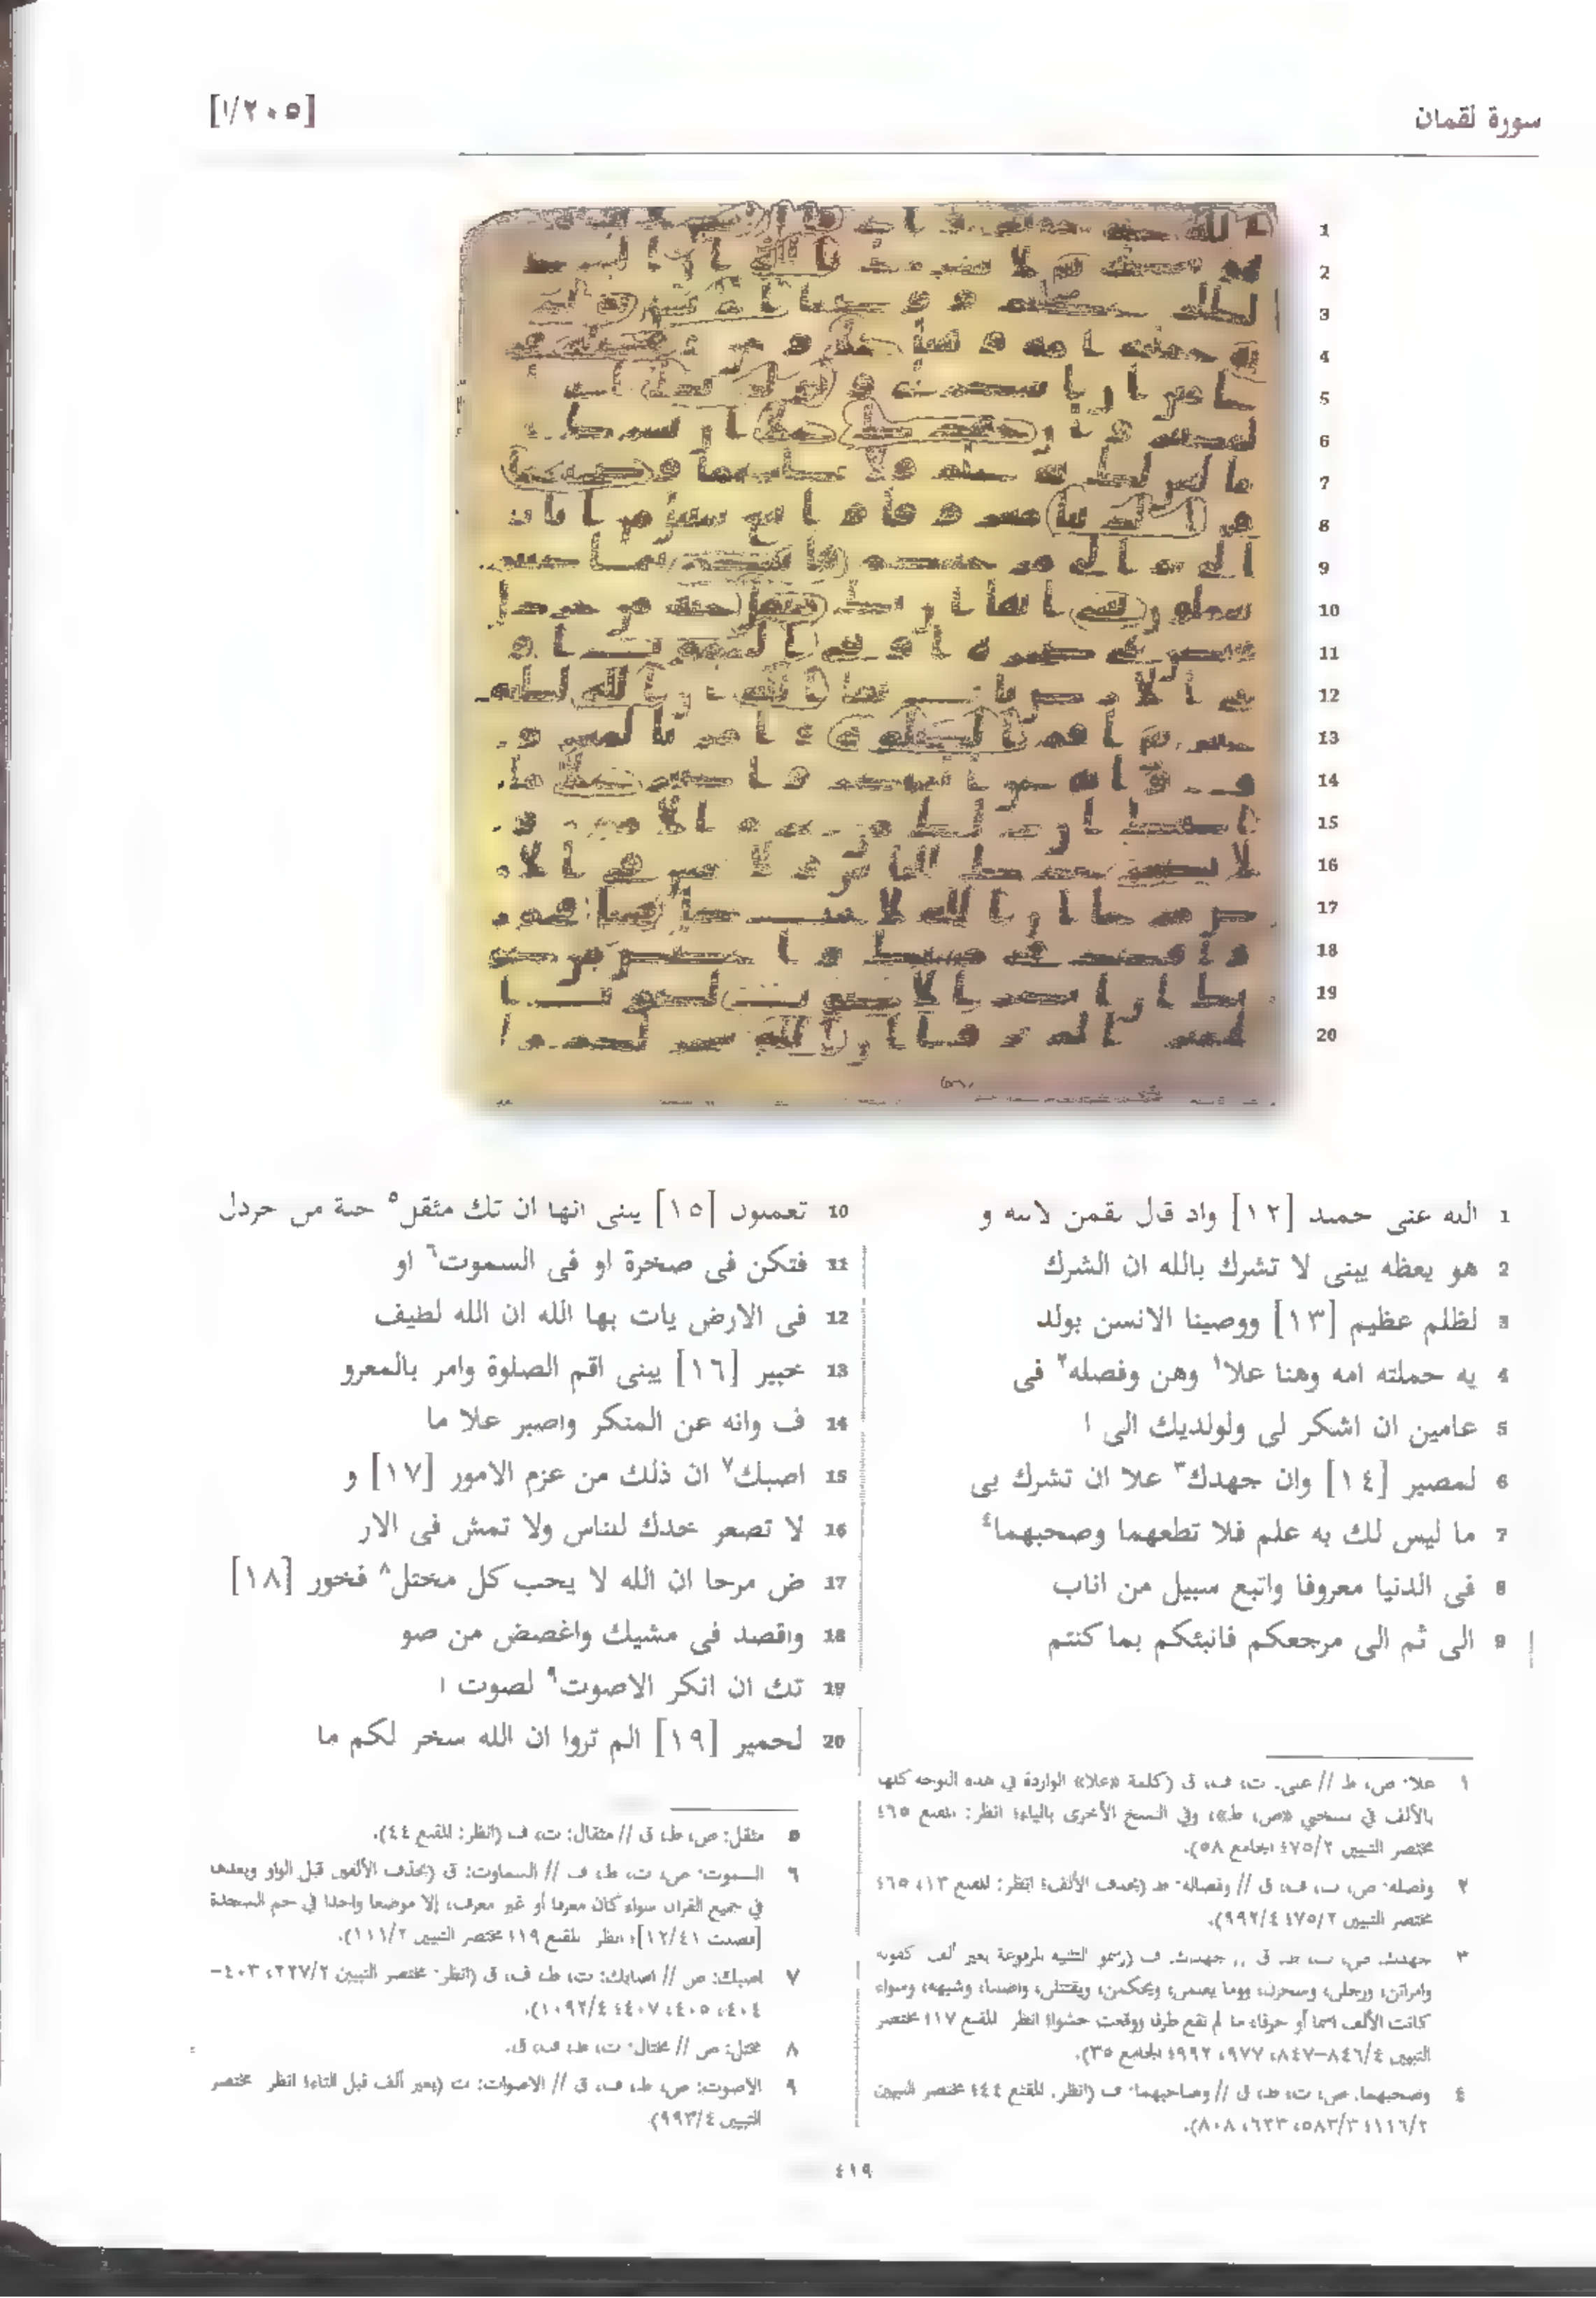 سورة لقمان
[٢٠٥/١]
1 الله غنى حميد [١٢] واذ قال لقمن لابنه و
2 هو يعظه يبنى لا تشرك بالله ان الشرك
3 لظلم عظيم [١٣] ووصينا الانسن بولد
4 يه حملته امه وهنا علا١ وهن وفصله٢ فى
5 عامين ان اشكر لى ولولديك الى ا
6 لمصير [١٤] وان جهدك٣ علا ان تشرك بى
7 ما ليس لك به علم فلا تطعهما وصحبهما٤
8 فى الدنيا معروفا واتبع سبيل من اناب
9 الى ثم الى مرجعكم فانبئكم بما كنتم
10 تعملون [١٥] يبنى انها ان تك مثقل٥ حبة من خردل
11 فتكن فى صخرة او فى السموت٦ او
12 فى الارض يات بها الله ان الله لطيف
13 خبير [١٦] يبنى اقم الصلوة وامر بالمعرو
14 ف وانه عن المنكر واصبر علا ما
15 اصبك٧ ان ذلك من عزم الامور [١٧] و
16 لا تصعر خدك للناس ولا تمش فى الار
17 ض مرحا ان الله لا يحب كل مختل٨ فخور [١٨]
18 واقصد فى مشيك واغضض من صو
19 تك ان انكر الاصوت٩ لصوت ا
20 لحمير [١٩] الم تروا ان الله سخر لكم ما
١ علا: ص، ط // على: ت، ف، ق (كلمة «علا» الواردة في هذه اللوحة كلها
بالألف في نسختي «ص، ط»، وفي النسخ الأخرى بالياء؛ انظر: المقنع ٦٥؛
مختصر التبيين ٧٥/٢؛ الجامع ٥٨).
٢ وفصله: ص، ت، ف، ق // وفصاله: ط (بحذف الألف؛ انظر: المقنع ١٣، ٦٥؛
مختصر التبيين ٧٥/٢؛ ٩٩٢/٤).
٣ جهدك: ص، ت، ط، ق // جهدك: ف (رسمو التثنيه المرفوعة بغير ألف كقوله
وامراتن، ورجلن، وسحرن، ووما يعلمن، ويحكمن، ويقتتلن، واضلنا، وشبهه، وسواء
كانت الألف اسما أو حرفا، ما لم تقع طرفا ووقعت حشوا؛ انظر: المقنع ١٧؛ مختصر
التبيين ٨٤٦/٤-٨٤٧، ٩٧٧، ٩٩٢؛ الجامع ٣٥).
٤ وصحبهما: ص، ت، ط، ق // وصاحبهما: ف (انظر: المقنع ٤٤؛ مختصر التبيين
١١٦/٢؛ ٥٨٣/٣، ٦٢٣، ٨٠٨).
٥ مثقل: ص، ط، ق // مثقال: ت، ف (انظر: المقنع ٤٤).
٦ السموت: ص، ت، ط، ف // السماوت: ق (بحذف الألفين قبل الواو وبعدها
في جميع القران سواء كان معرفا أو غير معرف، إلا موضعا واحدا في حم السجدة
[فصلت ١٢/٤١]؛ انظر: المقنع ١٩؛ مختصر التبيين ١١١/٢).
٧ اصبك: ص // اصابك: ت، ط، ف، ق (انظر: مختصر التبيين ٢٢٧/٢، ٤٠٣-
٤٠٤، ٤٠٥، ٤٠٧؛ ١٠٩٢/٤).
٨ مختل: ص // مختال: ت، ط، ف، ق.
٩ الاصوت: ص، ط، ف، ق // الاصوات: ت (بغير ألف قبل التاء؛ انظر: مختصر
التبيين ٩٩٣/٤).
٤١٩